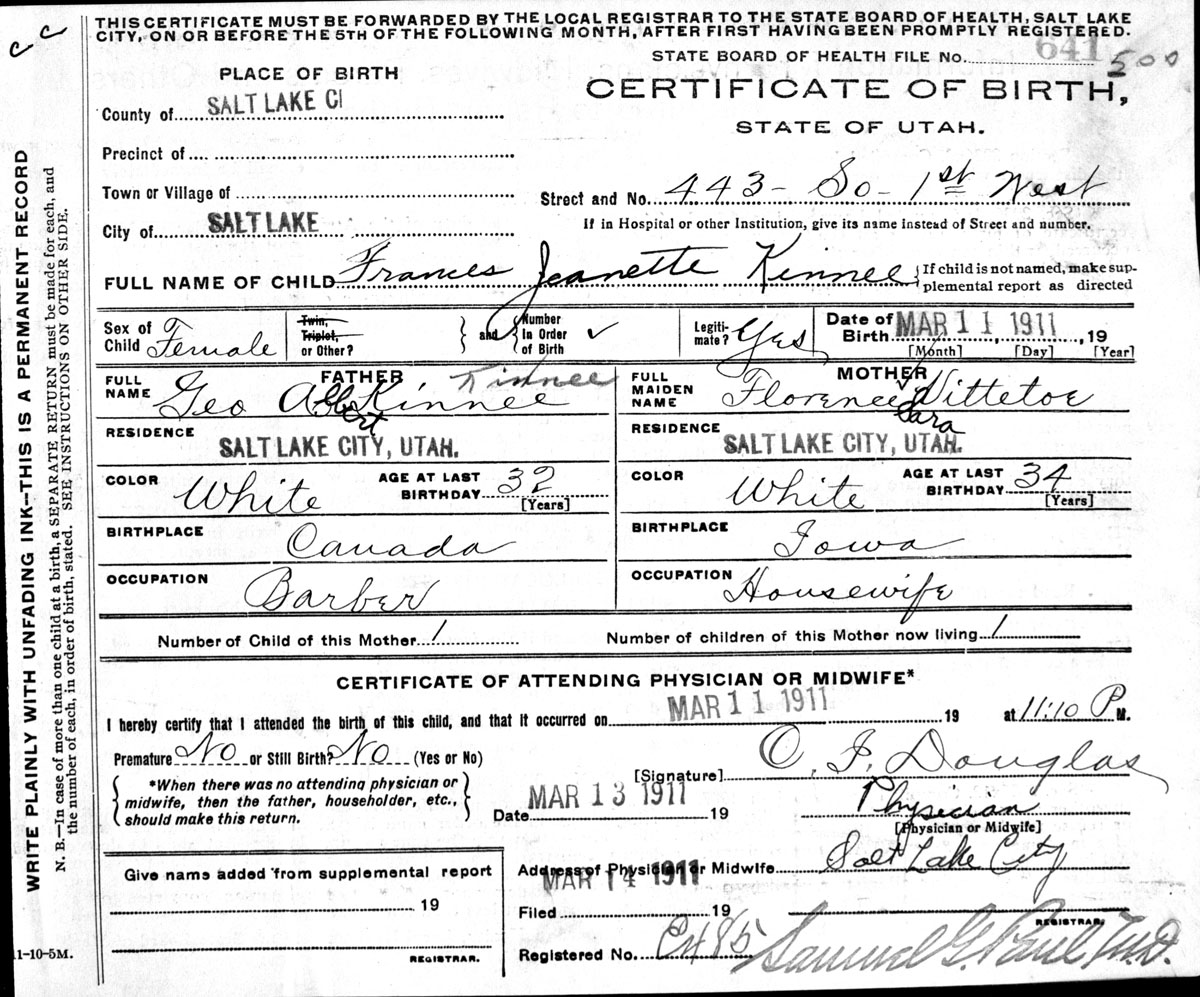 THIS CERTIFICATE MUST BE FORWARDED BY THE LOCAL REGISTRAR TO THE STATE BOARD OF HEALTH, SALT LAKE
CITY, ON OR BEFORE THE 5TH OF THE FOLLOWING MONTH, AFTER FIRST HAVING BEEN PROMPTLY REGISTERED.
STATE BOARD OF HEALTH FILE NO. 641 500
PLACE OF BIRTH
CERTIFICATE OF BIRTH,
County of SALT LAKE CI
STATE OF UTAH.
Precinct of
Town or Village of
Street and No. 443 - So - 1st West
City of SALT LAKE
If in Hospital or other Institution, give its name instead of Street and number.
FULL NAME OF CHILD Frances Jeanette Kinnee {If child is not named, make sup-
plemental report as directed
Sex of Child Female
Twin, Triplet, or Other?
and Number In Order of Birth ✓
Legiti-mate? Yes
Date of Birth MAR 11 1911, 19
[Month] [Day] [Year]
FATHER
FULL NAME Geo Albert Kinnee Kinnee
MOTHER
FULL MAIDEN NAME Florence Sara Vittetoe
RESIDENCE SALT LAKE CITY, UTAH.
RESIDENCE SALT LAKE CITY, UTAH.
COLOR White AGE AT LAST BIRTHDAY 32 [Years]
COLOR White AGE AT LAST BIRTHDAY 34 [Years]
BIRTHPLACE Canada
BIRTHPLACE Iowa
OCCUPATION Barber
OCCUPATION Housewife
Number of Child of this Mother 1
Number of children of this Mother now living 1
CERTIFICATE OF ATTENDING PHYSICIAN OR MIDWIFE*
I hereby certify that I attended the birth of this child, and that it occurred on MAR 11 1911 19 at 11:10 P M.
Premature No or Still Birth? No (Yes or No)
*When there was no attending physician or
midwife, then the father, householder, etc.,
should make this return.
[Signature] O. J. Douglas
Date MAR 13 1911 19
Physician
[Physician or Midwife]
Give name added from supplemental report
19
REGISTRAR.
Address of Physician or Midwife Salt Lake City
MAR 14 1911
Filed 19
REGISTRAR.
Registered No. 485 Samuel G. Paul M.D.
11-10-5M.
WRITE PLAINLY WITH UNFADING INK—THIS IS A PERMANENT RECORD
N. B.—In case of more than one child at a birth, a SEPARATE RETURN must be made for each, and
the number of each, in order of birth, stated. SEE INSTRUCTIONS ON OTHER SIDE.